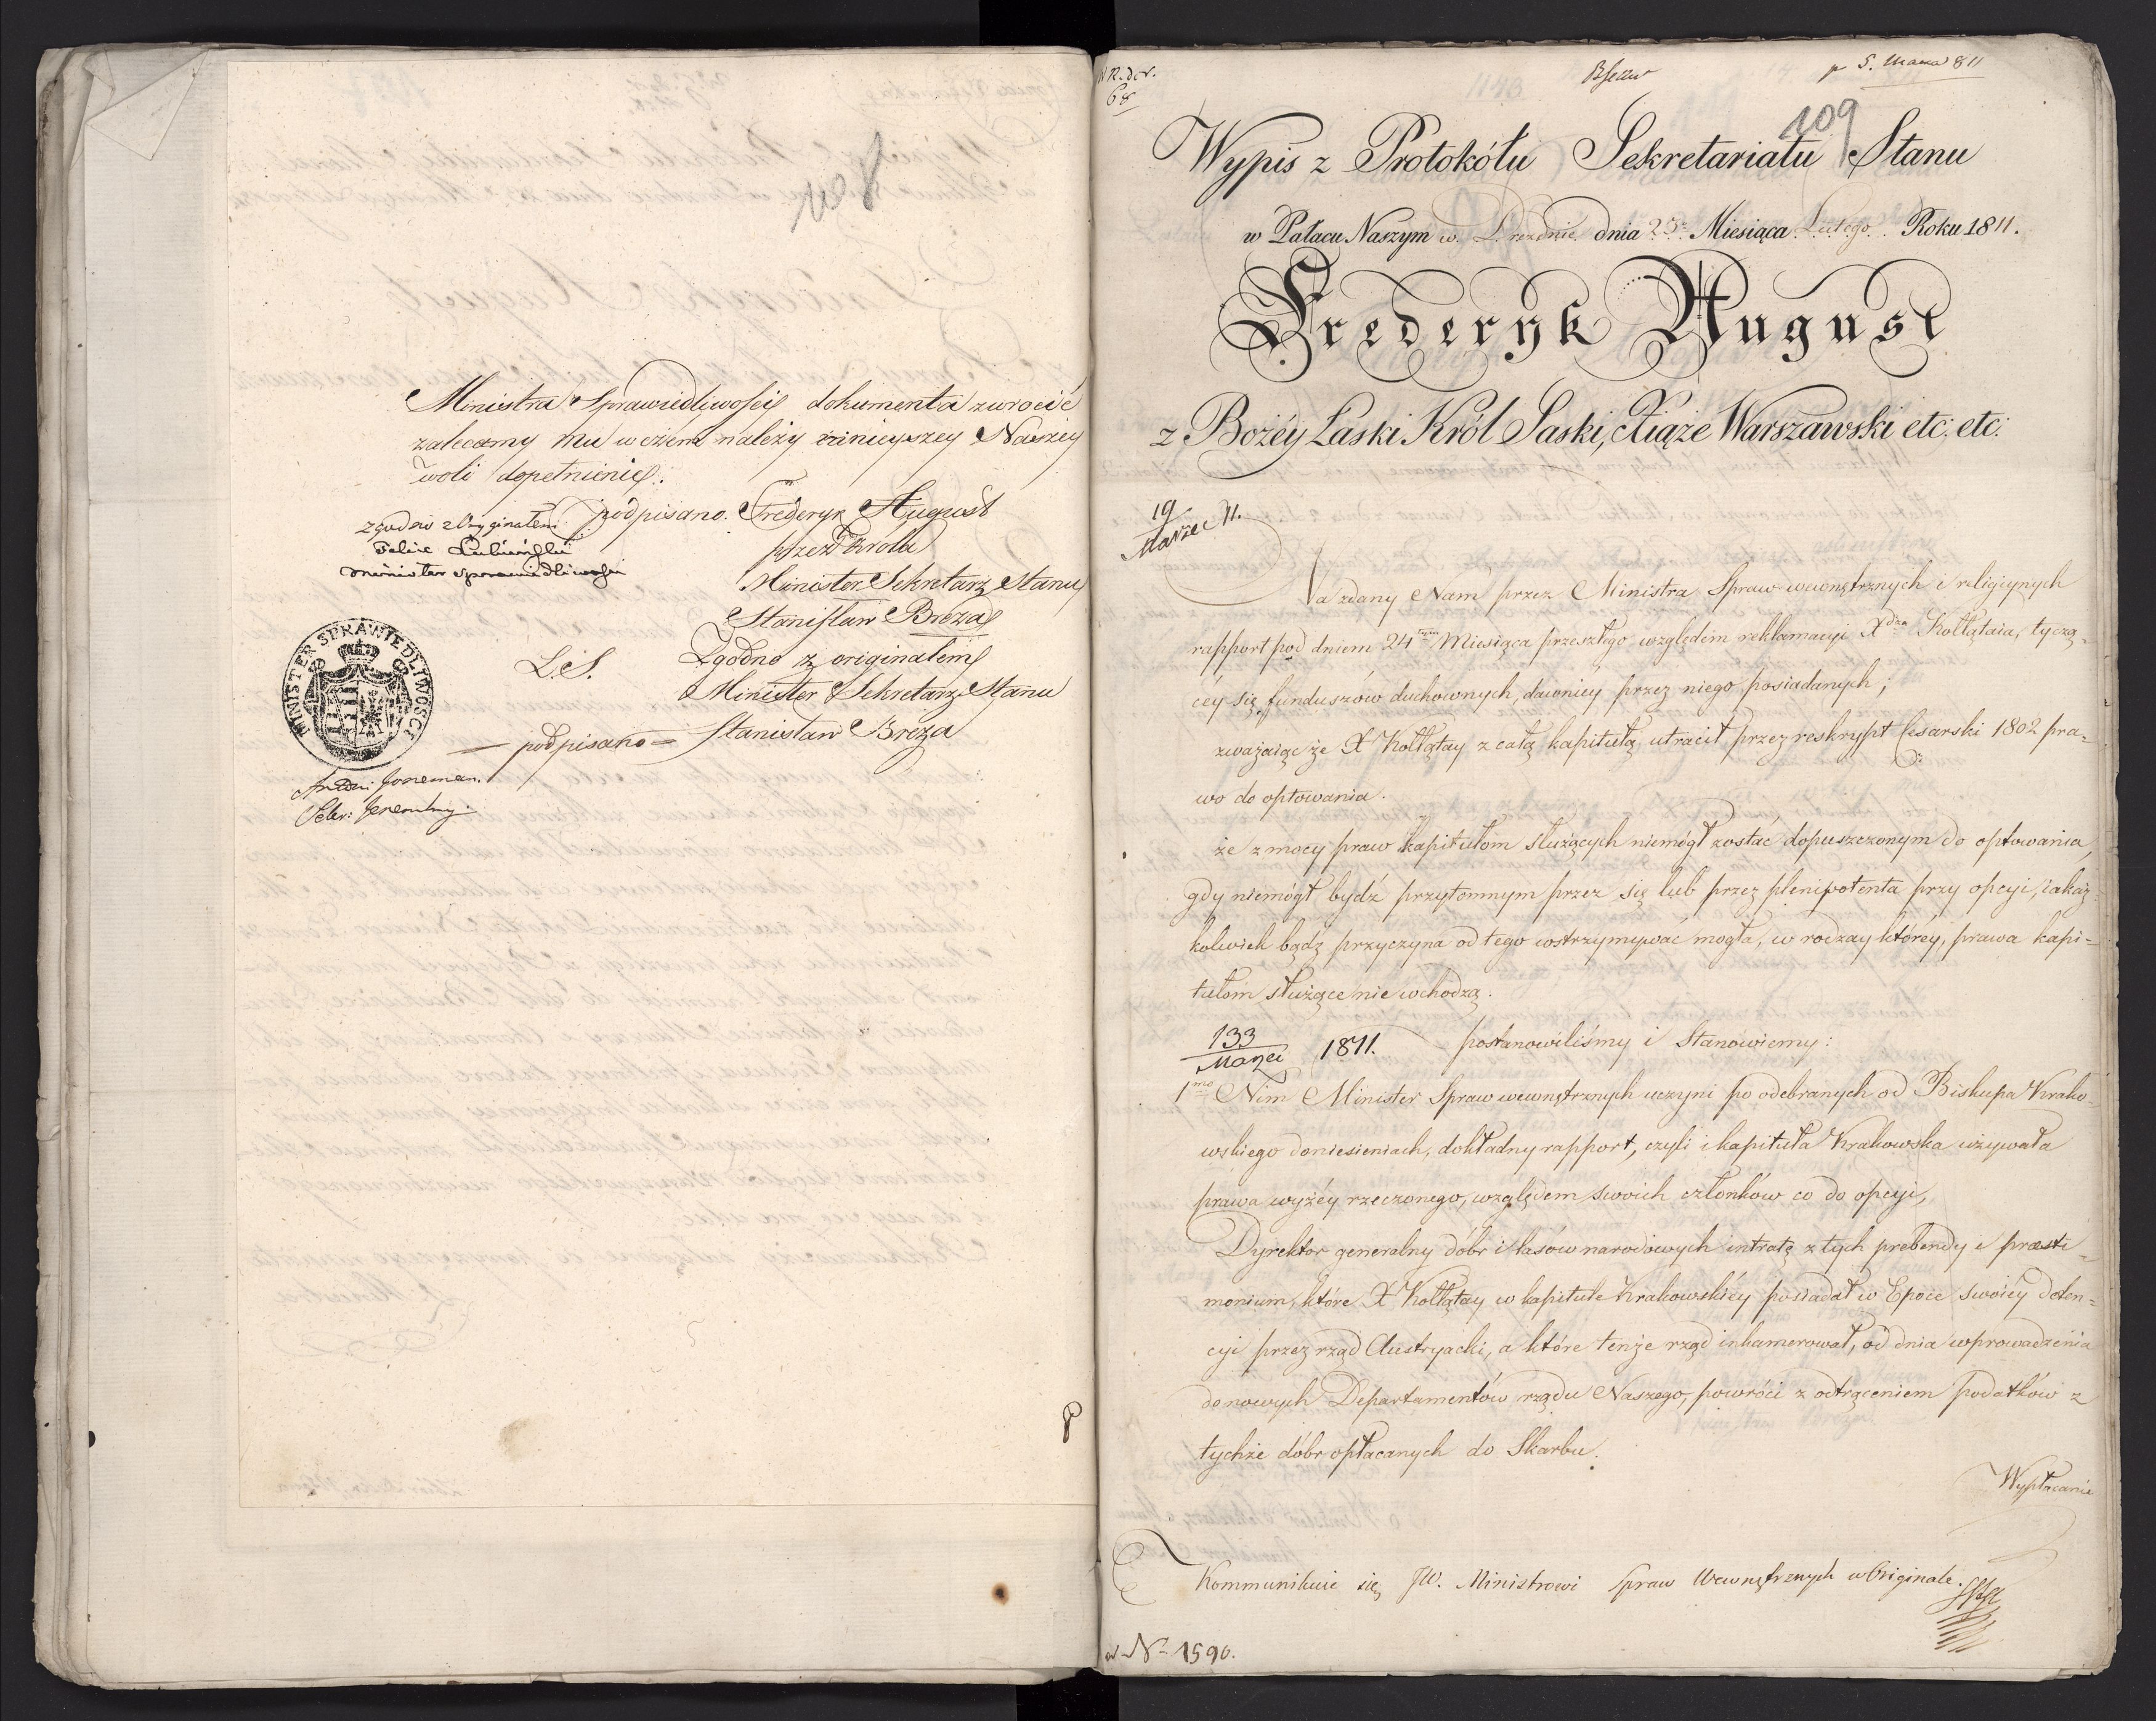 108
Ministra Sprawiedliwości dokumenta zwrocić
zalecamy mu w czem należy ninieyszey Naszey
woli dopełnienie.
podpisano. Frederyk August
przez Krola
Minister Sekretarz Stanu
Stanisław Breza
Zgodno z Oryginałem
Felix Lubieński
Minister sprawiedliwości
L.S.
Zgodno z originałem
Minister Sekretarz Stanu
— podpisano = Stanisław Breza
MINISTER SPRAWIEDLIWOSCI
Sekr: Jeneralny
68
p 5. Marca 811
109
Wypis z Protokółu Sekretariatu Stanu
w Pałacu Naszym w Dreznie dnia 25 Miesiąca Lutego Roku 1811.
Frederyk August
z Bożéy Łaski Król Saski, Xiąże Warszawski etc: etc:
19
Marzec 11.
Na zdany Nam przez Ministra Spraw wewnętrznych i religiynych
rapport pod dniem 24tym Miesiąca przeszłego względem reklamacyi Xdza Kołłątaia, tyczą-
céy się funduszów duchownych, dawniéy przez niego posiadanych;
zważaiąc że X Kołłątay z całą kapitułą utracił przez reskrypt Cesarski 1802 pra-
wo do optowania.
że z mocy praw kapitułom służących niemógł zostać dopuszczonym do optowania,
gdy niemógł bydź przytomnym przez się lub przez plenipotenta przy opcyi, iakaż-
kolwiek bądź przyczyna od tego wstrzymywać mogła, w rodzay któréy, prawa kapi-
tułom służące nie wchodzą.
133
Marzei 1811.
postanowiliśmy i Stanowiemy:
1mo Nim Minister Spraw wewnętrznych uczyni po odebranych od Biskupa Krako-
wskiego doniesieniach, dokładny rapport, czyli i kapituła Krakowska używała
prawa wyżéy rzeczonego, względem swoich członków co do opcyi,
Dyrektor generalny dóbr i lasów narodowych intratę z tych prebendy i præsti-
monium, które X Kołłątay w kapitule Krakowskiéy posiadał w Epoce swoiéy deten-
cyi przez rząd Austryacki, a które tenże rząd inkamerował, od dnia wprowadzenia
do nowych Departamentów rządu Naszego, powróci z odtrąceniem podatków z
tychże dóbr opłacanych do Skarbu.
Wypłacanie
Kommunikuie się JW. Ministrowi Spraw Wewnętrznych w Originale.
N 1590.